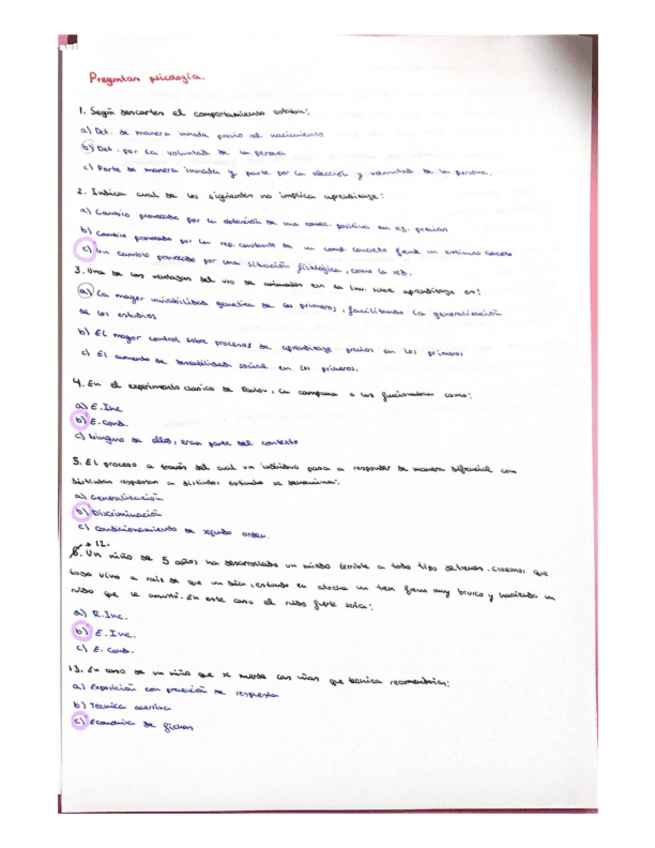 Preguntas psicología.
1. Según Descartes el comportamiento estaba:
a) Det. de manera innata previo al nacimiento
b) Det. por la voluntad de la persona
c) Parte de manera innata y parte por la elección y voluntad de la persona.
2. Indica cual de los siguientes no implica aprendizaje:
a) Cambio provocado por la obtención de una consec. positiva en ej. previas
b) Cambio provocado por la rep. constante de un comp. concreto frente un estímulo concreto
c) Un cambio provocado por una situación fisiológica, como la sed.
3. Una de las ventajas del uso de animales en la inv. sobre aprendizaje es:
a) La mayor variabilidad genetica de los primeros, facilitando la generalización
de los estudios
b) El mayor control sobre procesos de aprendizaje previos en los primeros
c) El aumento de deseabilidad social en los primeros.
4. En el experimento clasico de Pavlov, la campana o luz funcionaban como:
a) E. Inc
b) E. Cond.
c) Ninguno de ellos, eran parte del contexto
5. El proceso a través del cual un individuo pasa a responder de manera diferencial con
distintas respuestas a distintos estímulos se denomina:
a) Generalización
b) Discriminación
c) Condicionamiento de segundo orden.
12.
6. Un niño de 5 años ha desarrollado un miedo terrible a todo tipo de trenes. Creemos que
todo vino a raiz de que un día, estando en atocha un tren freno muy brusco y haciendo un
ruido que le asustó. En este caso el ruido fuerte sería:
a) R. Inc.
b) E. Inc.
c) E. Cond.
13. En caso de un niño que se muerde las uñas que tecnica recomendarías:
a) Exposición con prevención de respuesta
b) Tecnica aversiva
c) Economía de fichas